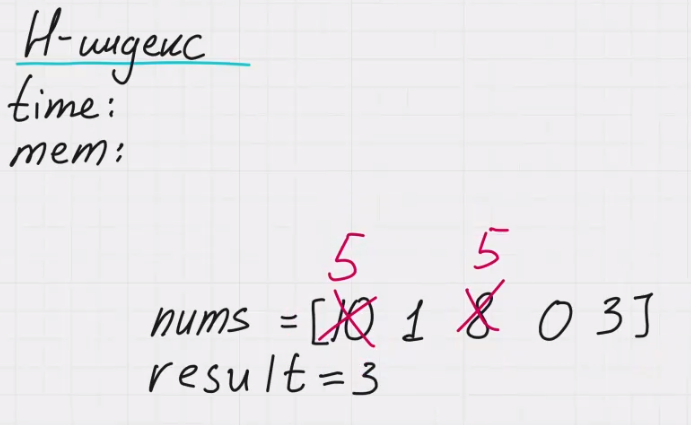 H-индекс
time:
mem:
5 5
nums = [10 1 8 0 3]
result = 3